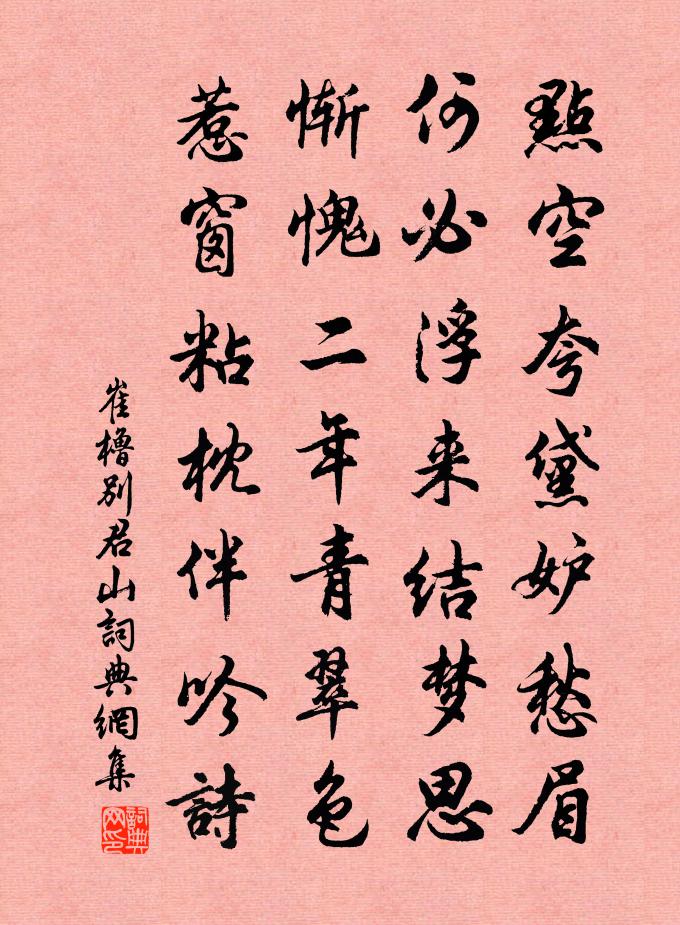 點空夸黛妒愁眉
何必浮来结梦思
惭愧二年青翠色
惹窗粘枕伴吟詩
崔櫓别君山詞典網集
詞典网印